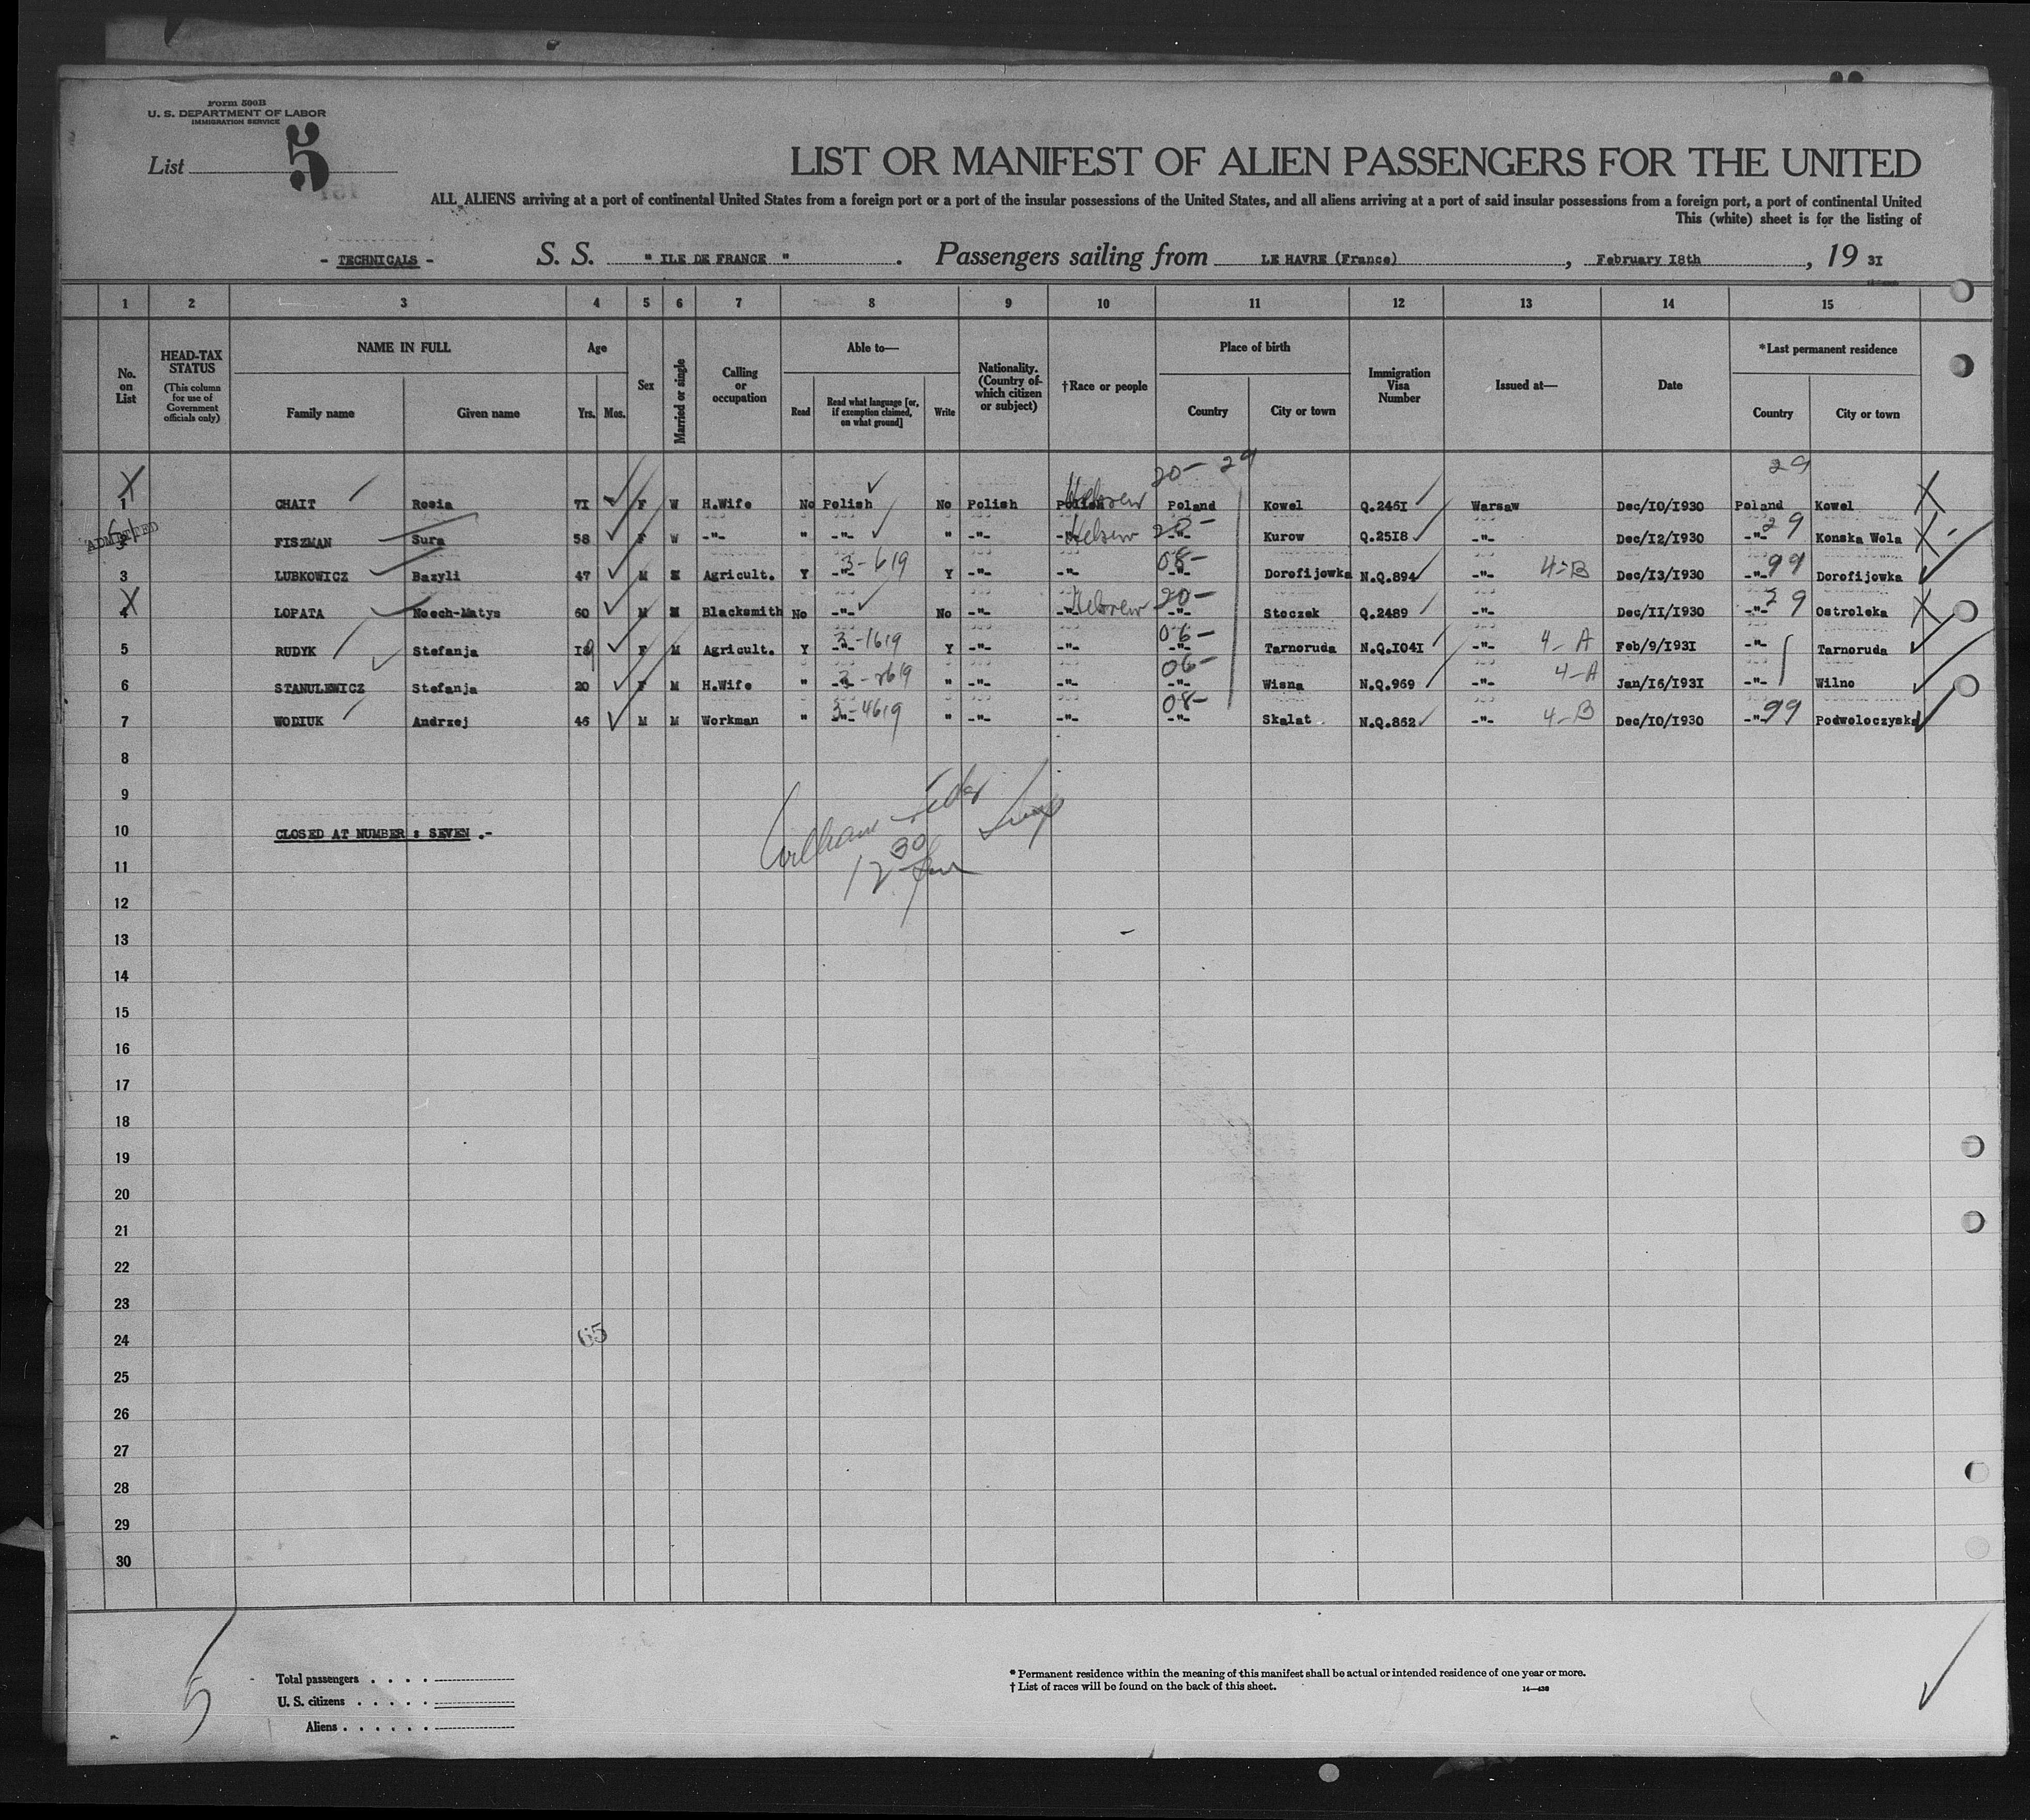 Form 500B
U. S. DEPARTMENT OF LABOR
IMMIGRATION SERVICE
List 5
LIST OR MANIFEST OF ALIEN PASSENGERS FOR THE UNITED
ALL ALIENS arriving at a port of continental United States from a foreign port or a part of the insular possessions of the United States, and all aliens arriving at a port of said insular possessions from a foreign port, a port of continental United
This (white) sheet is for the listing of
- TECHNICALS - S. S. " ILE DE FRANCE " . Passengers sailing from LE HAVRE (France) , February I8th , 19 3I
1 2 3 4 5 6 7 8 9 10 11 12 13 14 15
No. on List
HEAD-TAX STATUS
(This column for use of Government officials only)
NAME IN FULL
Family name Given name
Age
Yrs. Mos.
Sex
Married or single
Calling or occupation
Able to—
Read
Read what language [or, if exemption claimed, on what ground]
Write
Nationality. (Country of which citizen or subject)
†Race or people
Place of birth
Country City or town
Immigration Visa Number
Issued at—
Date
*Last permanent residence
Country City or town
20- 29 29
1 CHAIT Rosia 7I F W H.Wife No Polish No Polish Polish Hebrew Poland Kowel Q.246I Warsaw Dec/I0/I930 Poland Kowel
ADMITTED
2 FISZMAN Sura 58 F W -"- " -"- " -"- -"- Hebrew 20- -"- Kurow Q.25I8 -"- Dec/I2/I930 -"- 29 Konska Wola
3 LUBKOWICZ Bazyli 47 M M Agricult. Y -"- 3-619 Y -"- -"- 08- -"- Dorofijowka N.Q.894 -"- 4-B Dec/I3/I930 -"- 99 Dorofijowka
4 LOPATA Noech-Matys 60 M M Blacksmith No -"- No -"- -"- Hebrew 20- -"- Stoczek Q.2489 -"- Dec/II/I930 -"- 29 Ostroleka
5 RUDYK Stefanja I9 F M Agricult. Y -"- 3-1619 Y -"- -"- 06- -"- Tarnoruda N.Q.I04I -"- 4-A Feb/9/I93I -"- Tarnoruda
6 STANULEWICZ Stefanja 20 F M H.Wife " -"- 3-2619 " -"- -"- 06- -"- Wisna N.Q.969 -"- 4-A Jan/I6/I93I -"- Wilno
7 WODIUK Andrzej 46 M M Workman " -"- 3-4619 " -"- -"- 08- -"- Skalat N.Q.862 -"- 4-B Dec/I0/I930 -"- 99 Podwoloczyska
8
9
10 CLOSED AT NUMBER : SEVEN .-
William
12 30
11
12
13
14
15
16
17
18
19
20
21
22
23
24 65
25
26
27
28
29
30
5
Total passengers . . . .
U. S. citizens . . . . .
Aliens . . . . . .
* Permanent residence within the meaning of this manifest shall be actual or intended residence of one year or more.
† List of races will be found on the back of this sheet.
14—436